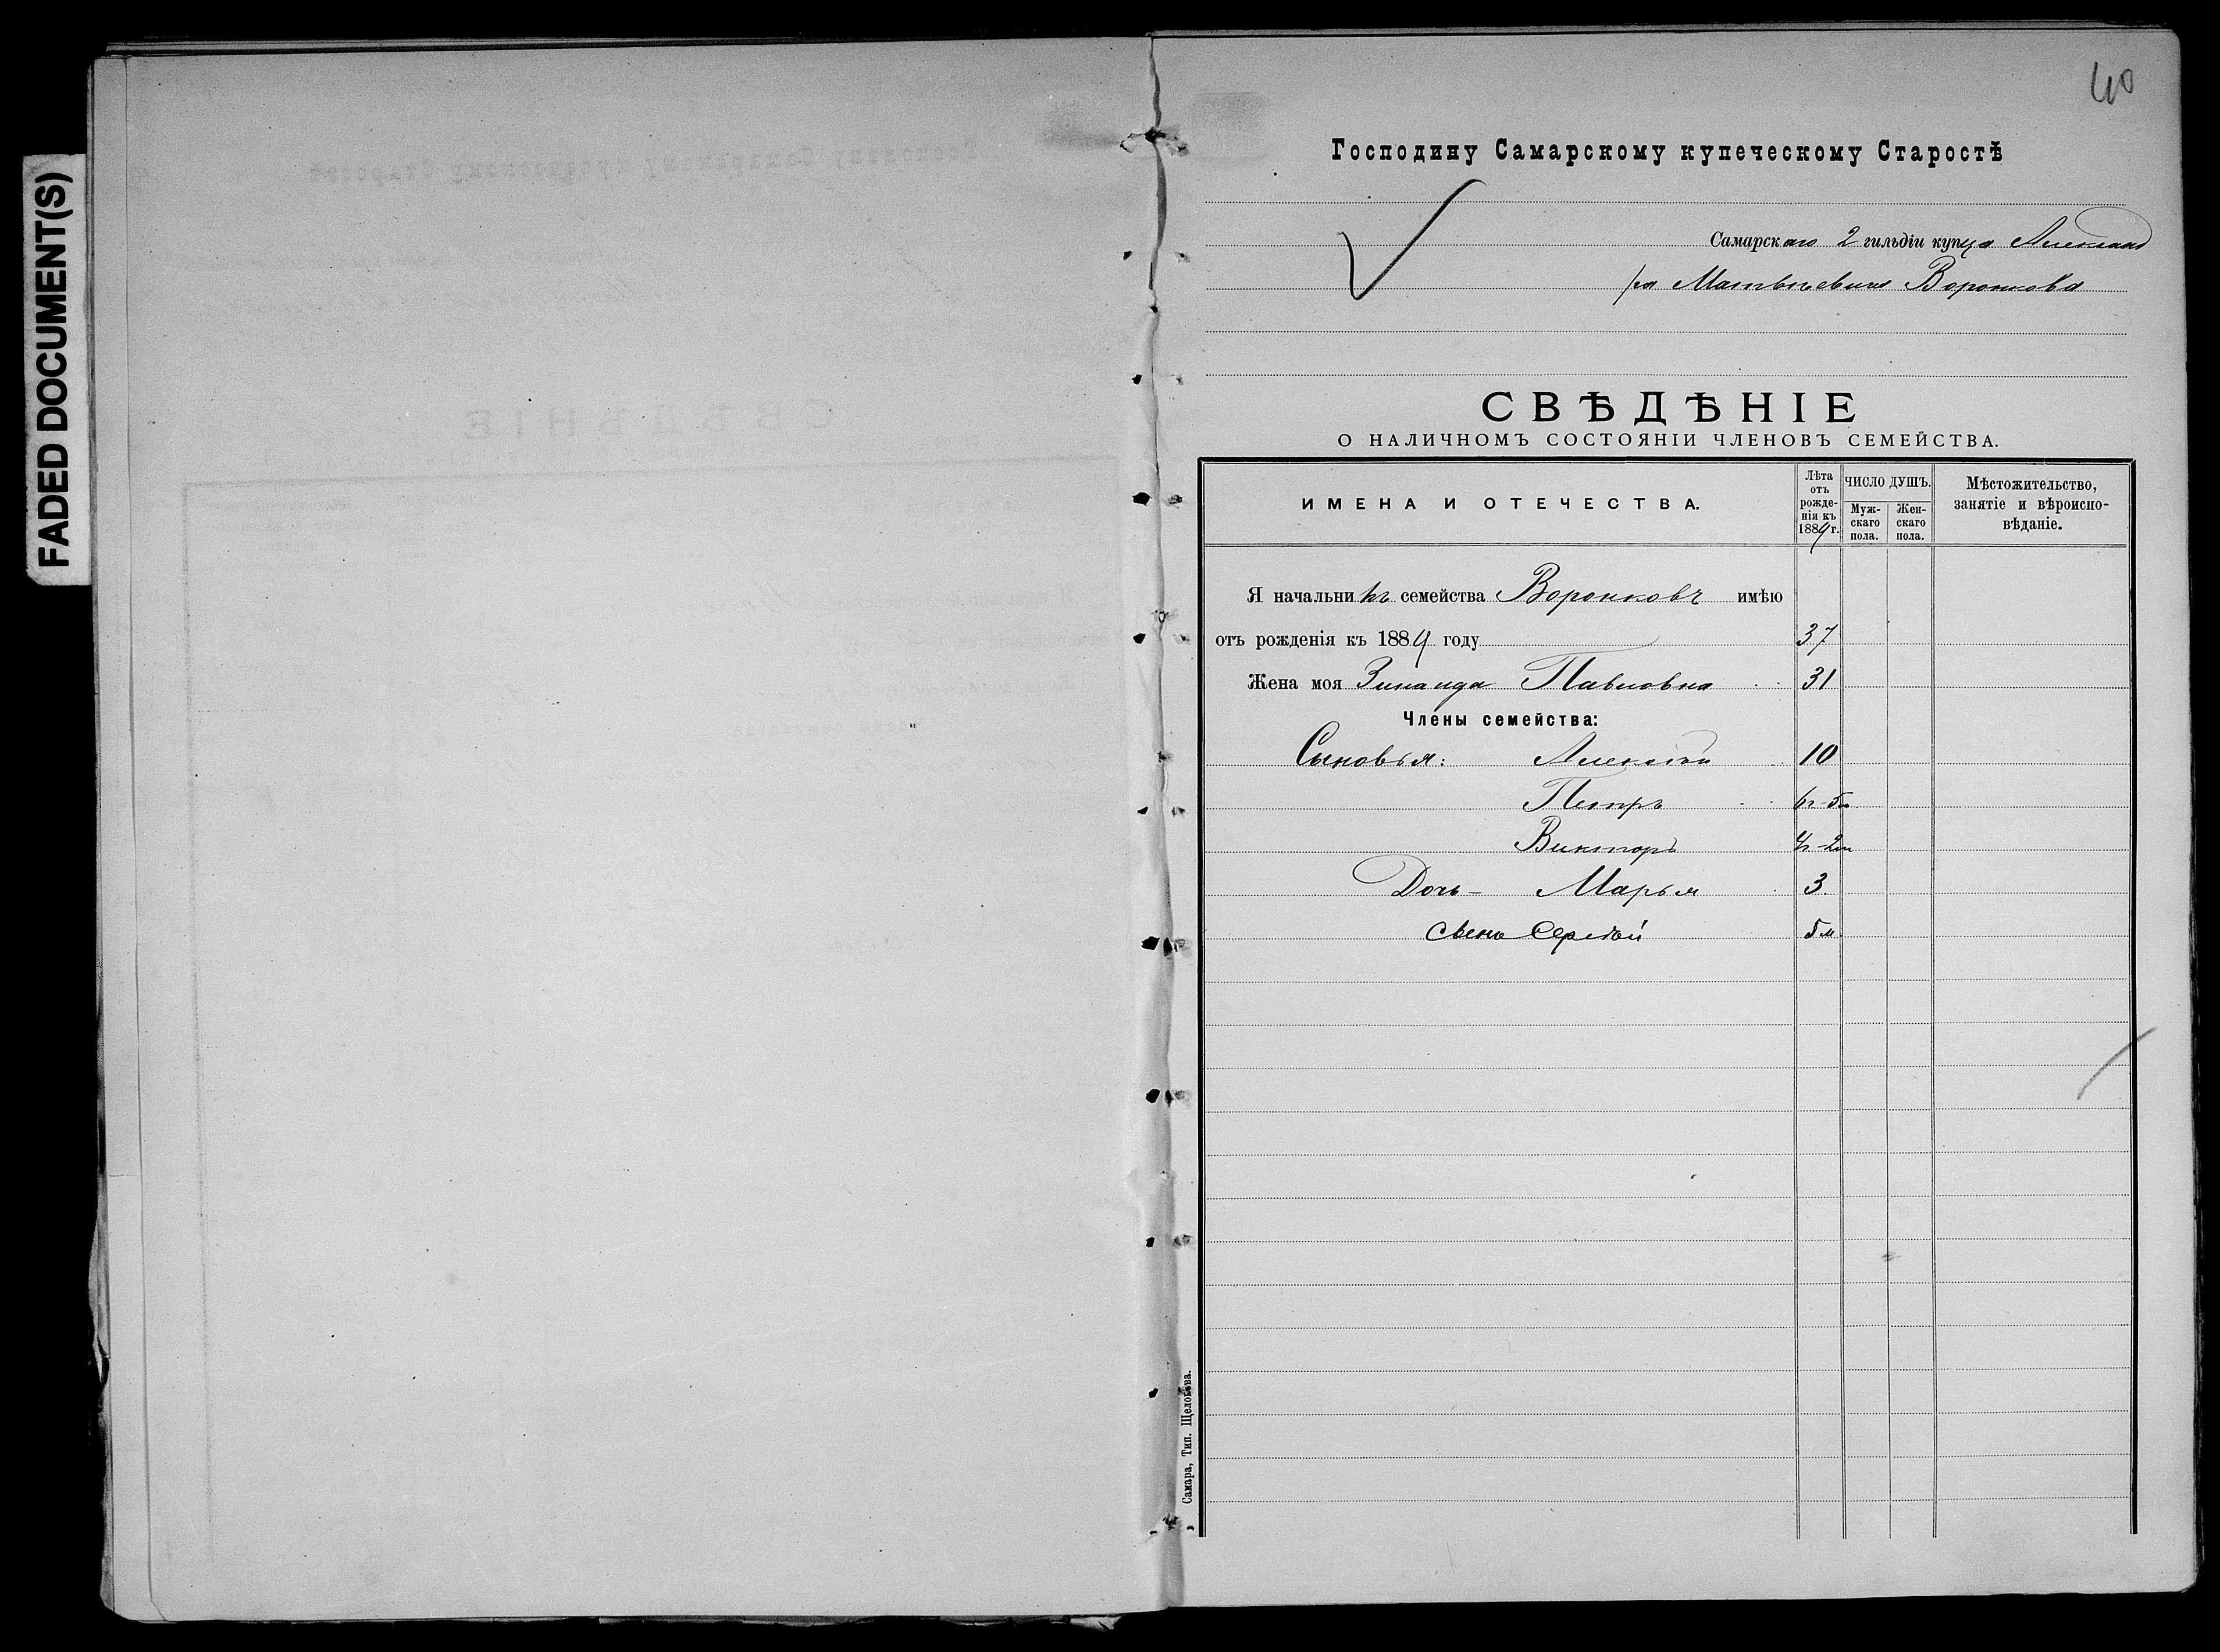 FADED DOCUMENT(S)
40
Господину Самарскому купеческому Старостѣ
Самарскаго 2 гильдіи купца Александ
ра Матвѣевича Воронкова
СВѢДѢНІЕ
О НАЛИЧНОМЪ СОСТОЯНІИ ЧЛЕНОВЪ СЕМЕЙСТВА.
ИМЕНА И ОТЕЧЕСТВА.
Лѣта
отъ
рожде-
нія къ
1884 г.
ЧИСЛО ДУШЪ.
Муж-
скаго
пола.
Жен-
скаго
пола.
Мѣстожительство,
занятіе и вѣроиспо-
вѣданіе.
Я начальникъ семейства Воронковъ имѣю
отъ рожденія къ 1884 году 37
Жена моя Зинаида Павловна 31
Члены семейства:
Сыновья: Алексѣй 10
Петръ 6г-5м
Викторъ 4г-2м
Дочь - Марья 3.
Сынъ Сергѣй 5м.
Самара, Тип. Щелокова.